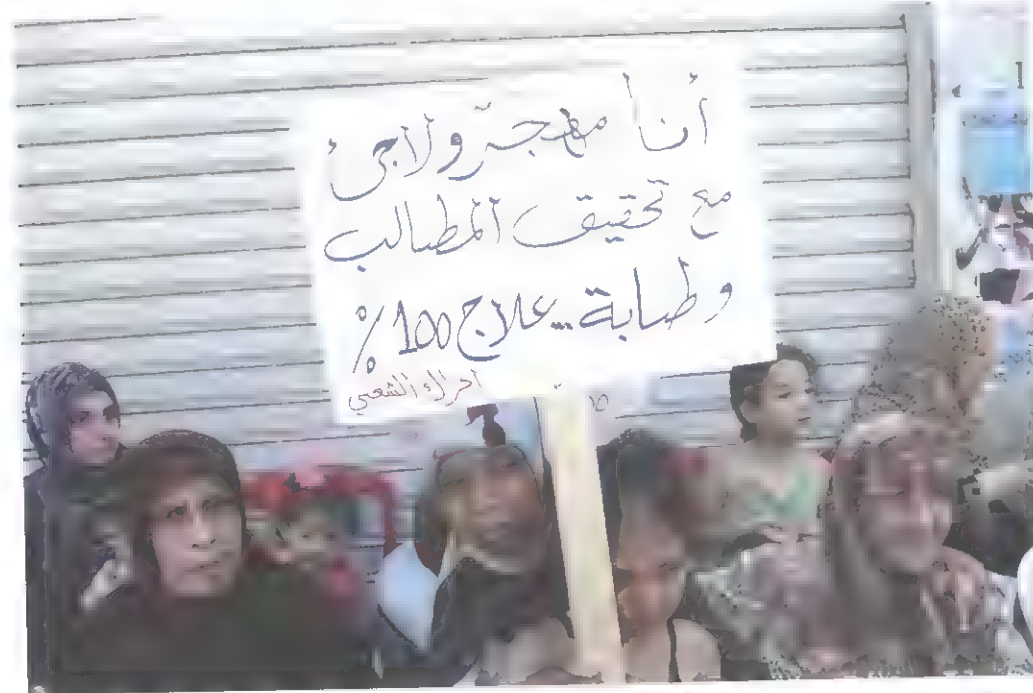 أنا مهجّر ولاجئ
مع تحقيق المطالب
و طبابة... علاج 100 %
الحراك الشعبي